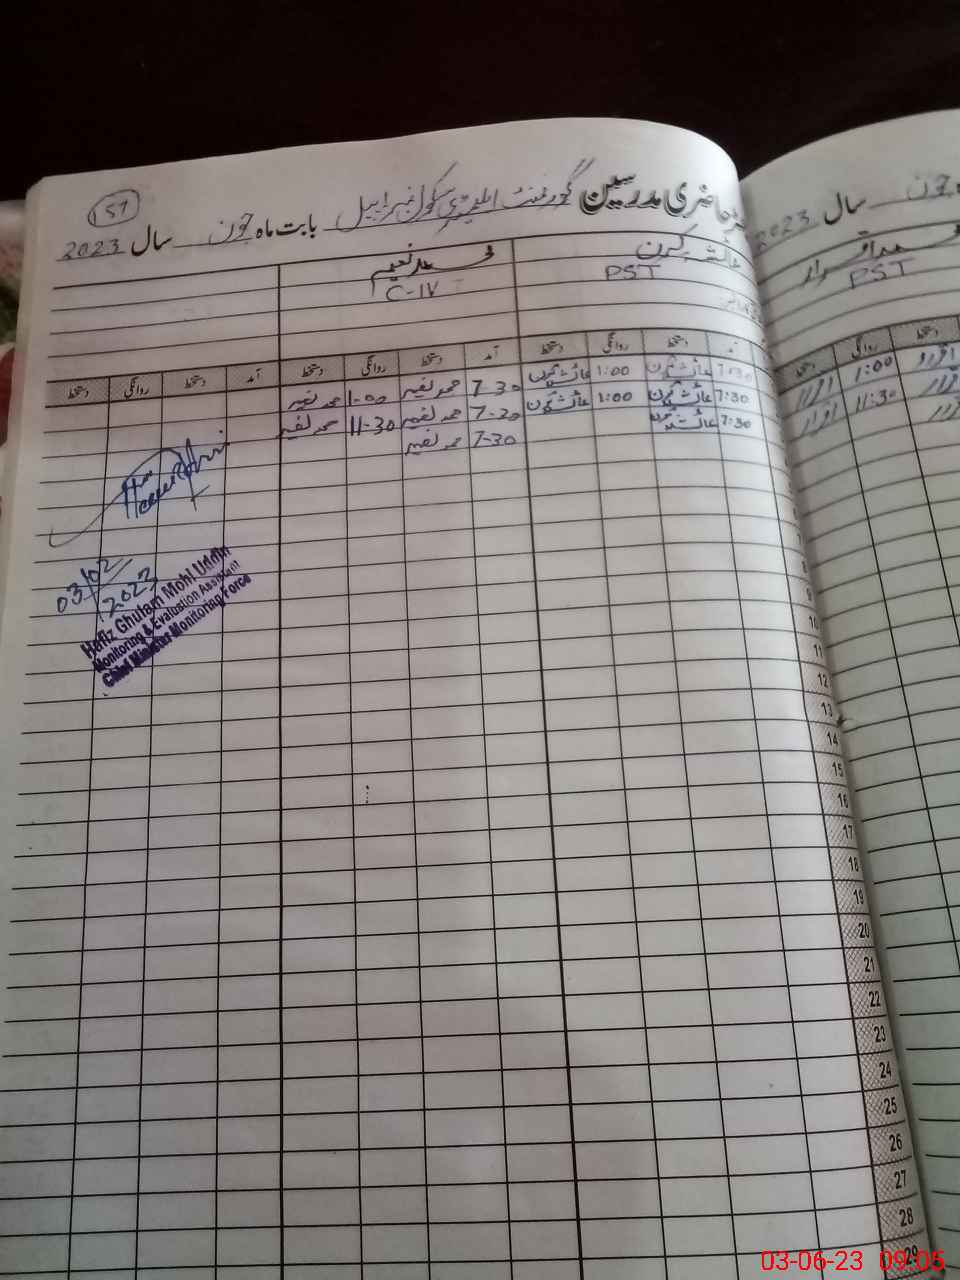 157
رجسٹر حاضری مدرسین گورنمنٹ ایلیمنٹری سکول نمبر 1 بابت ماہ جون سال 2023
عائشہ کرن
محمد نعیم
PST
C-IV
آمد دستخط روانگی دستخط آمد دستخط روانگی دستخط آمد دستخط روانگی دستخط
7:30 عائشہ کرن 1:00 عائشہ کرن 7-30 محمد نعیم 1-00 محمد نعیم
7:30 عائشہ کرن 1:00 عائشہ کرن 7-30 محمد نعیم 11-30 محمد نعیم
7:30 عائشہ کرن 7-30 محمد نعیم
03/02/
2023
Hafiz Ghulam Mohi Uddin
Monitoring & Evaluation Assistant
Chief Minister Monitoring Force
8
9
10
11
12
13
14
15
16
17
18
19
20
21
22
23
24
25
26
27
28
29
جون سال 2023
PST
دستخط روانگی دستخط
1:00
11:30
03-06-23 09:05